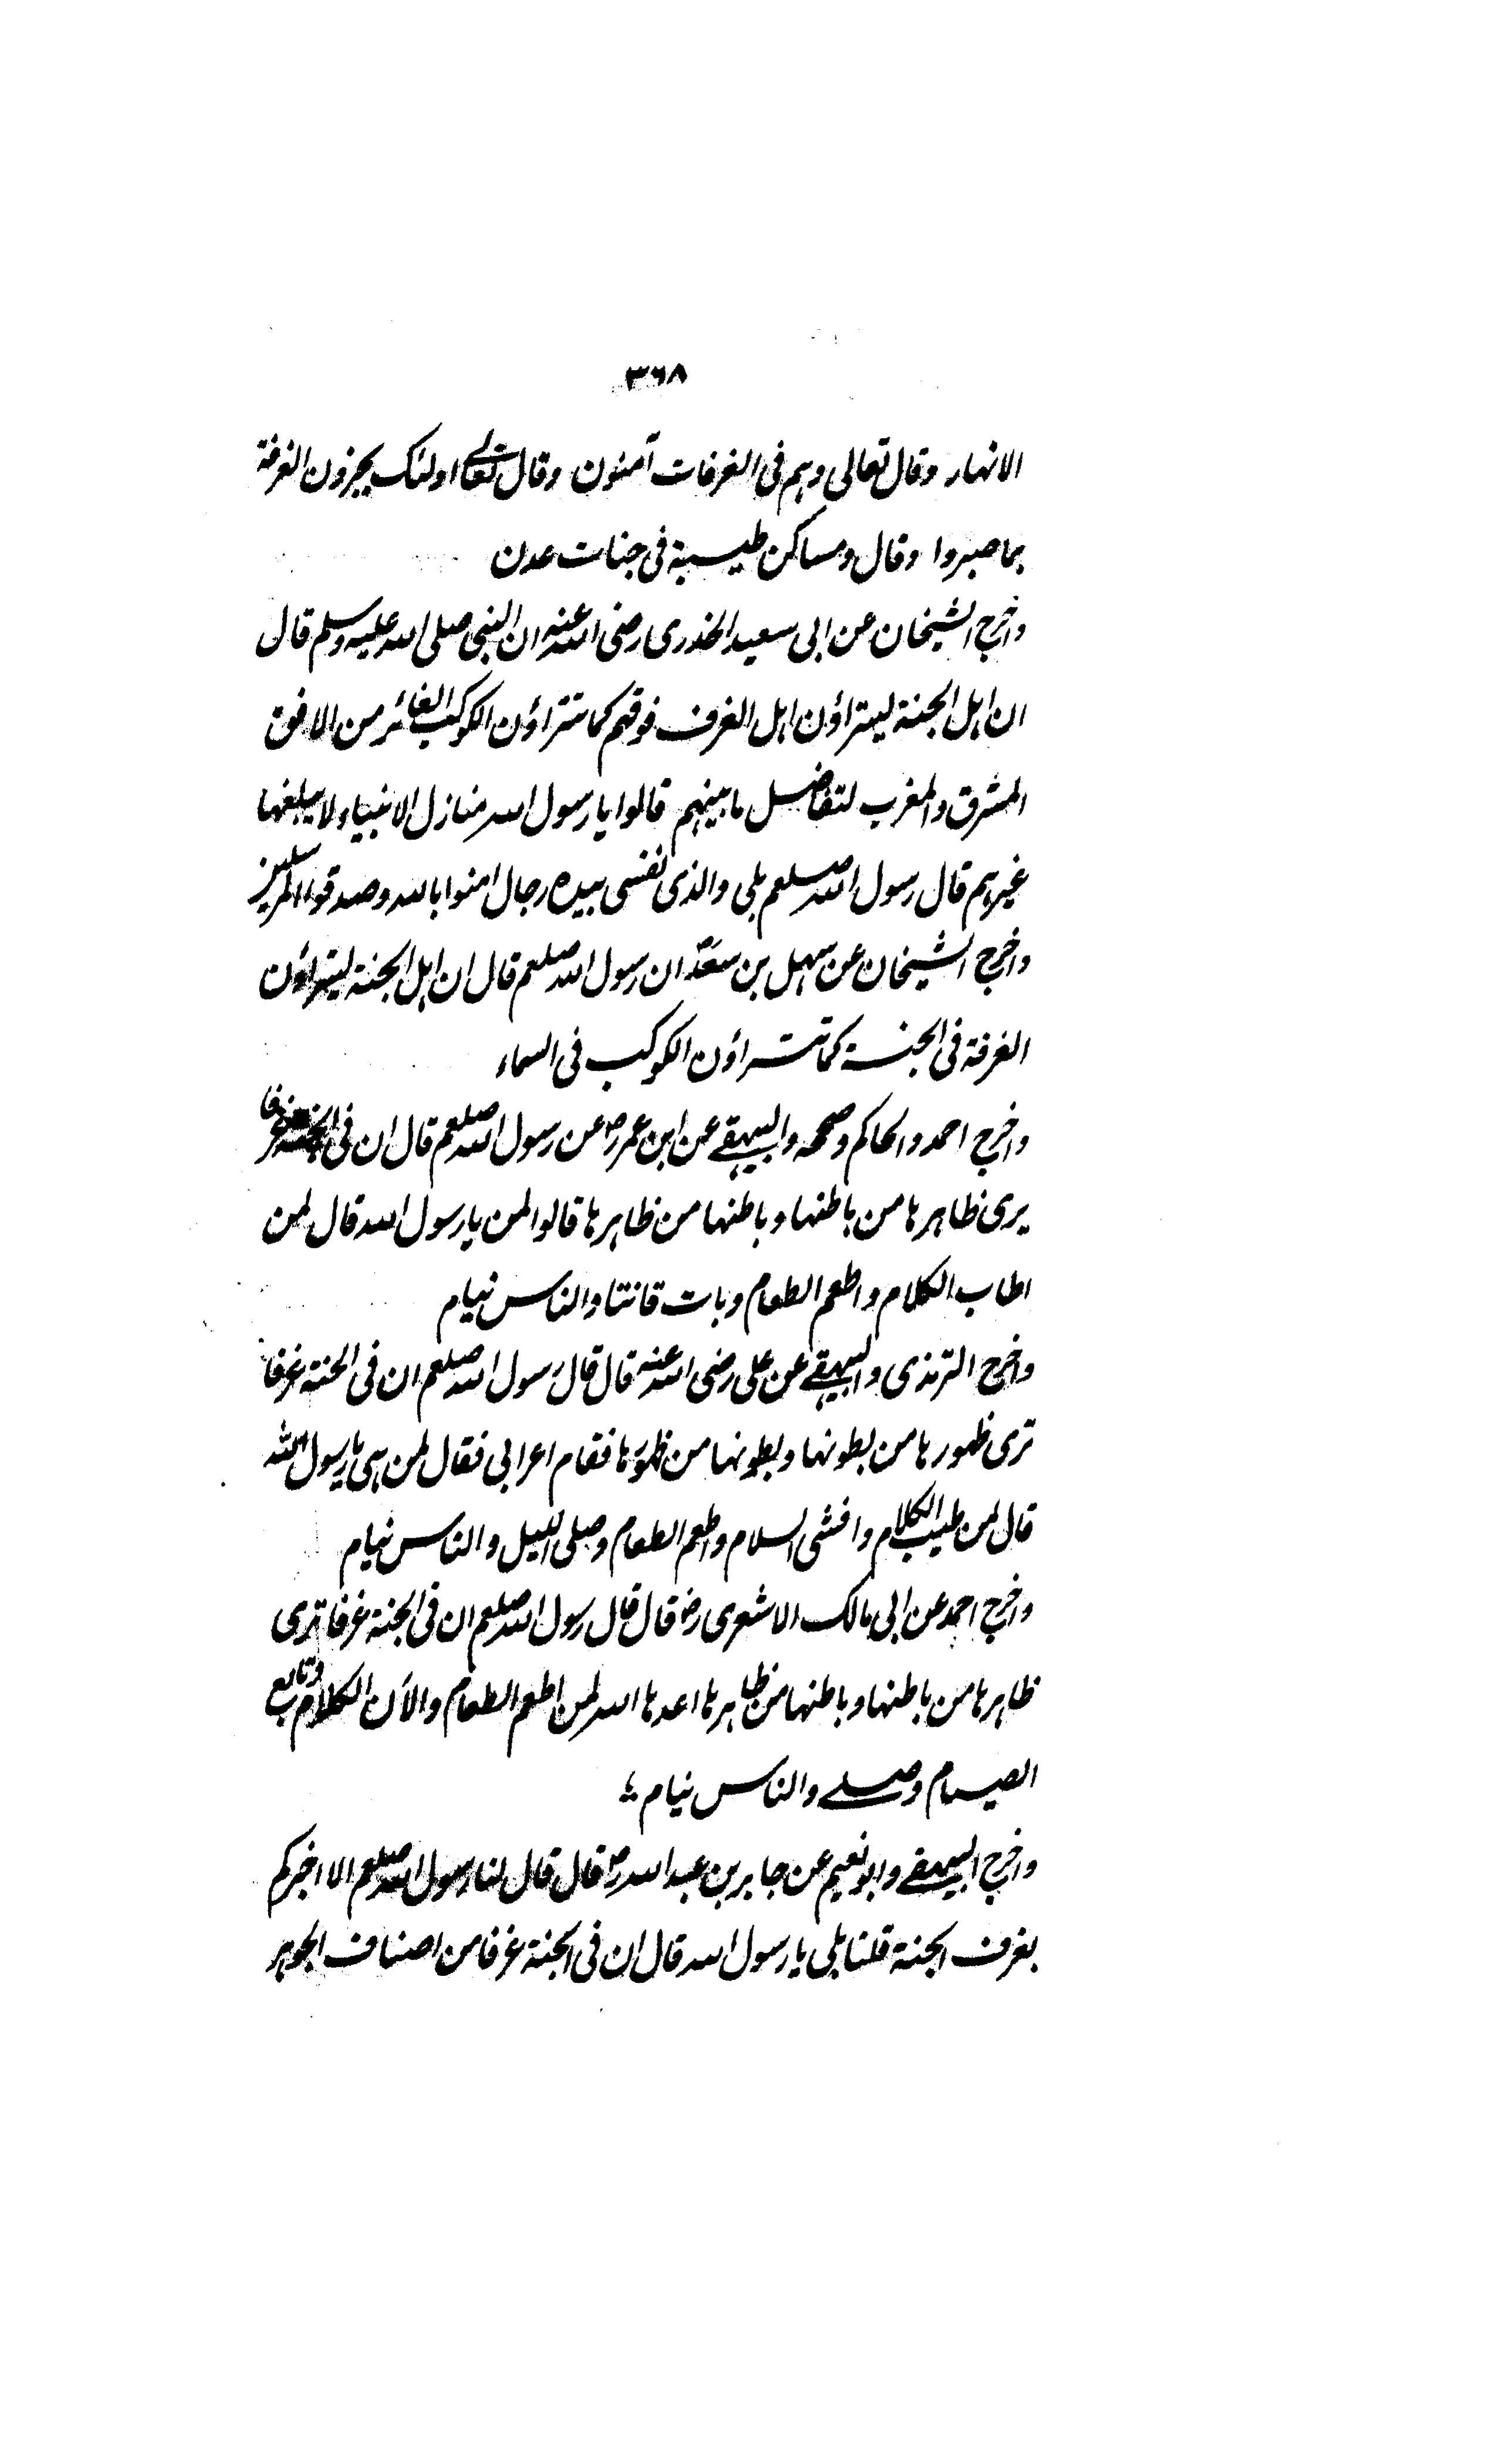 ٣٦٨
الانهار وقال تعالى وهم فى الغرفات آمنون وقال تعالى اولئك يجزون الغرفة
بما صبروا وقال ومساكن طيبة فى جنات عدن
واخرج الشيخان عن ابى سعيد الخدرى رضى الله عنه ان النبى صلى الله عليه وسلم قال
ان اهل الجنة ليتراؤن اهل الغرف فوقهم كما تتراؤن الكوكب الغائر من الافق
المشرق والمغرب لتفاضل ما بينهم قالوا يا رسول الله منازل الانبياء لا يبلغها
غيرهم قال رسول الله صلعم بلى والذى نفسى بيده رجال امنوا بالله وصدقوا المرسلين
واخرج الشيخان عن سهل بن سعد ان رسول الله صلعم قال ان اهل الجنة ليتراؤن
الغرفة فى الجنة كما تتراؤن الكوكب فى السماء
واخرج احمد والحاكم وصححه والبيهقے عن ابن عمر رض عن رسول الله صلعم قال ان فى الجنة غرفا
يرى ظاهرها من باطنها وباطنها من ظاهرها قالوا لمن يا رسول الله قال لمن
اطاب الكلام واطعم الطعام وبات قانتا والناس نيام
واخرج الترمذى والبيهقے عن على رضى الله عنه قال قال رسول الله صلعم ان فى الجنة غرفا
ترى ظهورها من بطونها وبطونها من ظهورها فقام اعرابى فقال لمن هى يا رسول الله
قال لمن طيب الكلام وافشى السلام واطعم الطعام وصلى الليل والناس نيام
واخرج احمد عن ابى مالك الاشعرى رض قال قال رسول الله صلعم ان فى الجنة غرفا ترى
ظاهرها من باطنها وباطنها من ظاهرها اعدها الله لمن اطعم الطعام والان الكلام وتابع
الصيام وصلے والناس نيام
واخرج البيهقے وابو نعيم عن جابر بن عبد الله رض قال قال لنا رسول الله صلعم الا اخبركم
بغرف الجنة قلنا بلى يا رسول الله قال ان فى الجنة غرفا من اصناف الجوهر